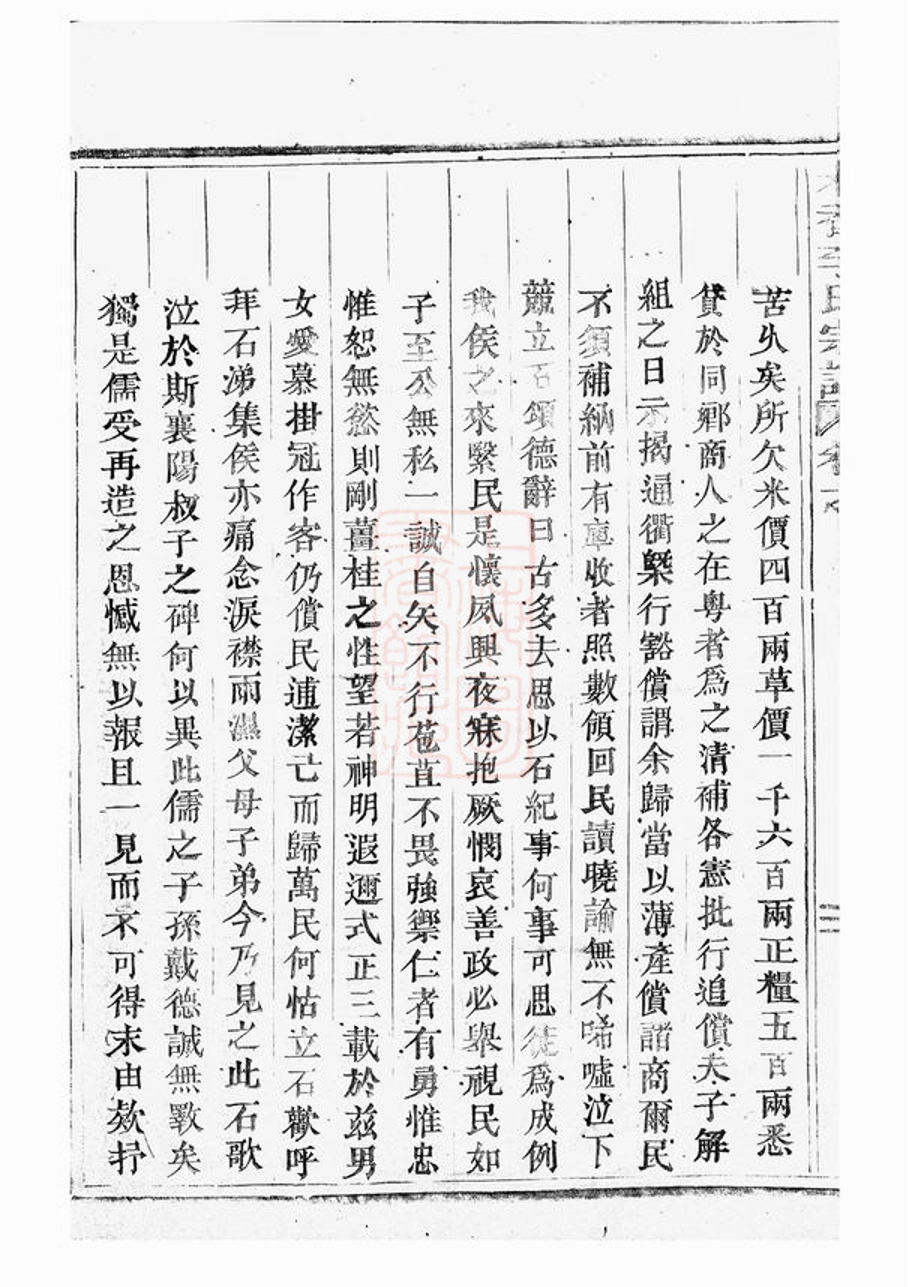 苦久矣所欠米價四百兩草價一千六百兩正糧五百兩悉
貸於同鄉商人之在粵者爲之清補各憲批行追償夫子解
組之日示揭通衢槩行豁償謂余歸當以薄產償諸商爾民
不須補納前有車收者照數領回民讀曉諭無不唏噓泣下
競立石頌德辭曰古多去思以石紀事何事可思徒爲成例
我侯之來繄民是懷夙興夜寐抱厥憫哀善政必舉視民如
子至公無私一誠自矢不行苞苴不畏強禦仁者有勇惟忠
惟恕無慾則剛薑桂之性望若神明遐邇式正三載於茲男
女愛慕掛冠作客仍償民逋潔己而歸萬民何怙立石歡呼
拜石涕集侯亦痛念淚襟雨濕父母子弟今乃見之此石歌
泣於斯襄陽叔子之碑何以異此儒之子孫戴德誠無斁矣
獨是儒受再造之恩憾無以報且一見而不可得末由欸抒